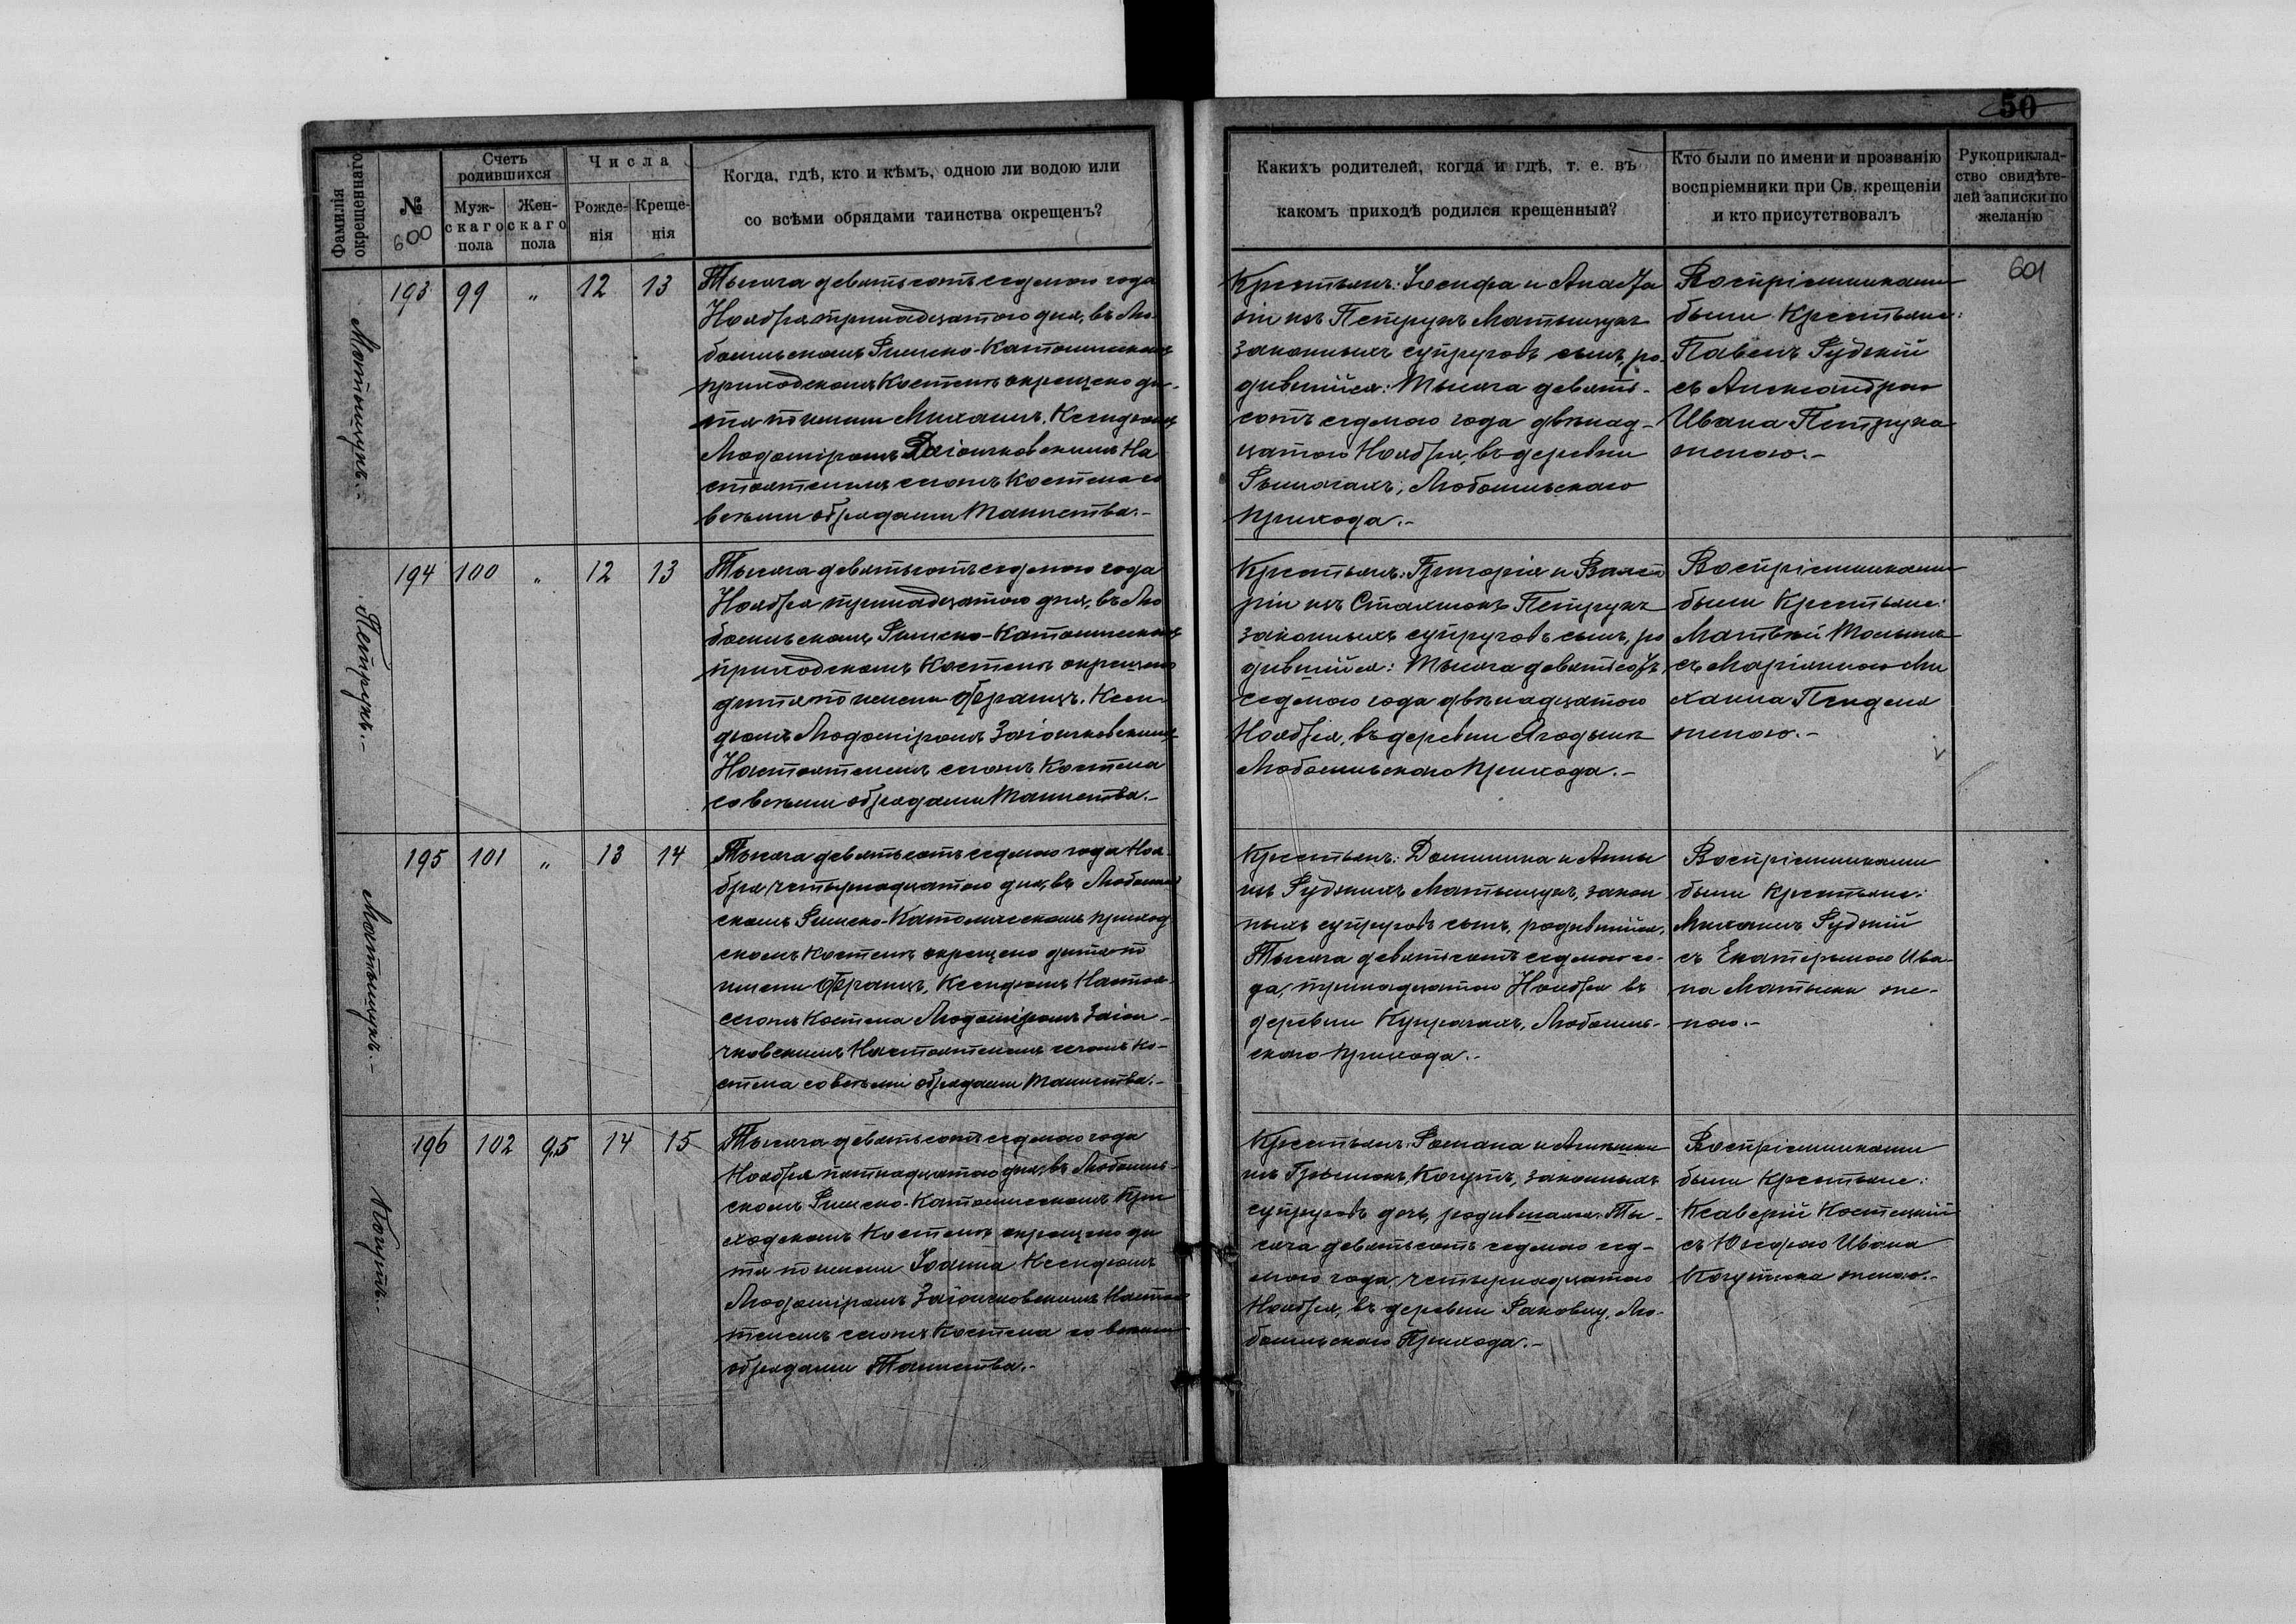 50
Фамилія
окрещеннаго
№
600
Счетъ
родившихся
Муж-
скаго
пола
Жен-
скаго
пола
Числа
Рожде-
нія
Креще-
нія
Когда, гдѣ, кто и кѣмъ, одною ли водою или
со всѣми обрядами таинства окрещенъ?
Какихъ родителей, когда и гдѣ, т. е. въ
какомъ приходѣ родился крещенный?
Кто были по имени и прозванію
воспріемники при Св. крещеніи
и кто присутствовалъ
Рукоприклад-
ство свидѣте-
лей записки по
желанію
601
Матыщукъ.-
193 99 " 12 13
Тысяча девятьсотъ седьмого года
Ноября тринадцатого дня, въ Лю-
бомльскомъ Римско-Католическомъ
приходскомъ Костелѣ окрещено ди-
тя по имени Михаилъ, Ксендзомъ
Людомиромъ Заіончковскимъ На
стоятелемъ сегожъ Костела со
всѣми обрядами Таинства.-
Крестьянъ: Іосифа и
изъ Петрукъ Матыщукъ
законныхъ супруговъ сынъ, ро-
дившійся: Тысяча девять-
сотъ седьмого года двѣнад-
цатого Ноября, въ деревни
Рымачахъ, Любомльскаго
прихода.-
Воспріемниками
были Крестьяне:
Павелъ Рудзкій
съ Александрою
Ивана Петрука
женою.-
Петрукъ.-
194 100 " 12 13
Тысяча девятьсотъ седьмого года
Ноября тринадцатого дня, въ Лю
бомльскомъ Римско-Католическомъ
приходскомъ Костелѣ окрещено
дитя по имени Францъ. Ксен
дзомъ Людомиромъ Заіончковскимъ
Настоятелемъ сегожъ Костела
со всѣми обрядами Таинства.-
Крестьянъ: Григорія и Вале
ріи изъ Петрукъ
законныхъ супруговъ сынъ, ро
дившійся: Тысяча девятьсотъ
седьмого года двѣнадцатого
Ноября, въ деревни Ягодынѣ
Любомльскаго Прихода.-
Воспріемниками
были Крестьяне:
Матвѣй
съ Маріянною Ми
хаила
женою.-
Матыщукъ.-
195 101 " 13 14
Тысяча девятьсотъ седьмого года Ноя-
бря четырнадцатого дня, въ Любомль
скомъ Римско-Католическомъ приход
скомъ Костелѣ окрещено дитя по
имени Францъ, Ксендзомъ Настоя-
сегожъ Костела Людомиромъ Заіон-
чковскимъ Настоятелемъ сегожъ Ко-
стела со всѣми обрядами Таинства.-
Крестьянъ: Доминика и Анны
изъ Рудзкихъ Матыщукъ, закон
ныхъ супруговъ сынъ, родившійся,
Тысяча девятьсотъ седьмого го-
да, тринадцатого Ноября въ
деревни Купрачахъ, Любомль-
скаго Прихода.-
Воспріемниками
были Крестьяне:
Михаилъ Рудзкій
съ Екатериною Ива-
на же-
ною.-
Когутъ.-
196 102 95 14 15
Тысяча девятьсотъ седьмого года
Ноября пятнадцатого дня, въ Любомль-
скомъ Римско-Католическомъ При
ходскомъ Костелѣ окрещено ди
тя по имени Іоанна Ксендзомъ
Людомиромъ Заіончковскимъ Настоя
телемъ сегожъ Костела со всѣми
обрядами Таинства.-
Крестьянъ: Романа и
изъ Когутъ, законныхъ
супруговъ дочь, родившаяся: Ты-
сяча девятьсотъ седьмого сед-
мого года, четырнадцатого
Ноября, въ деревни Раковцу, Лю-
бомльскаго Прихода.-
Воспріемниками
были Крестьяне:
Ксаверій Костецкій
съ Юзефою Ивана
женою.-